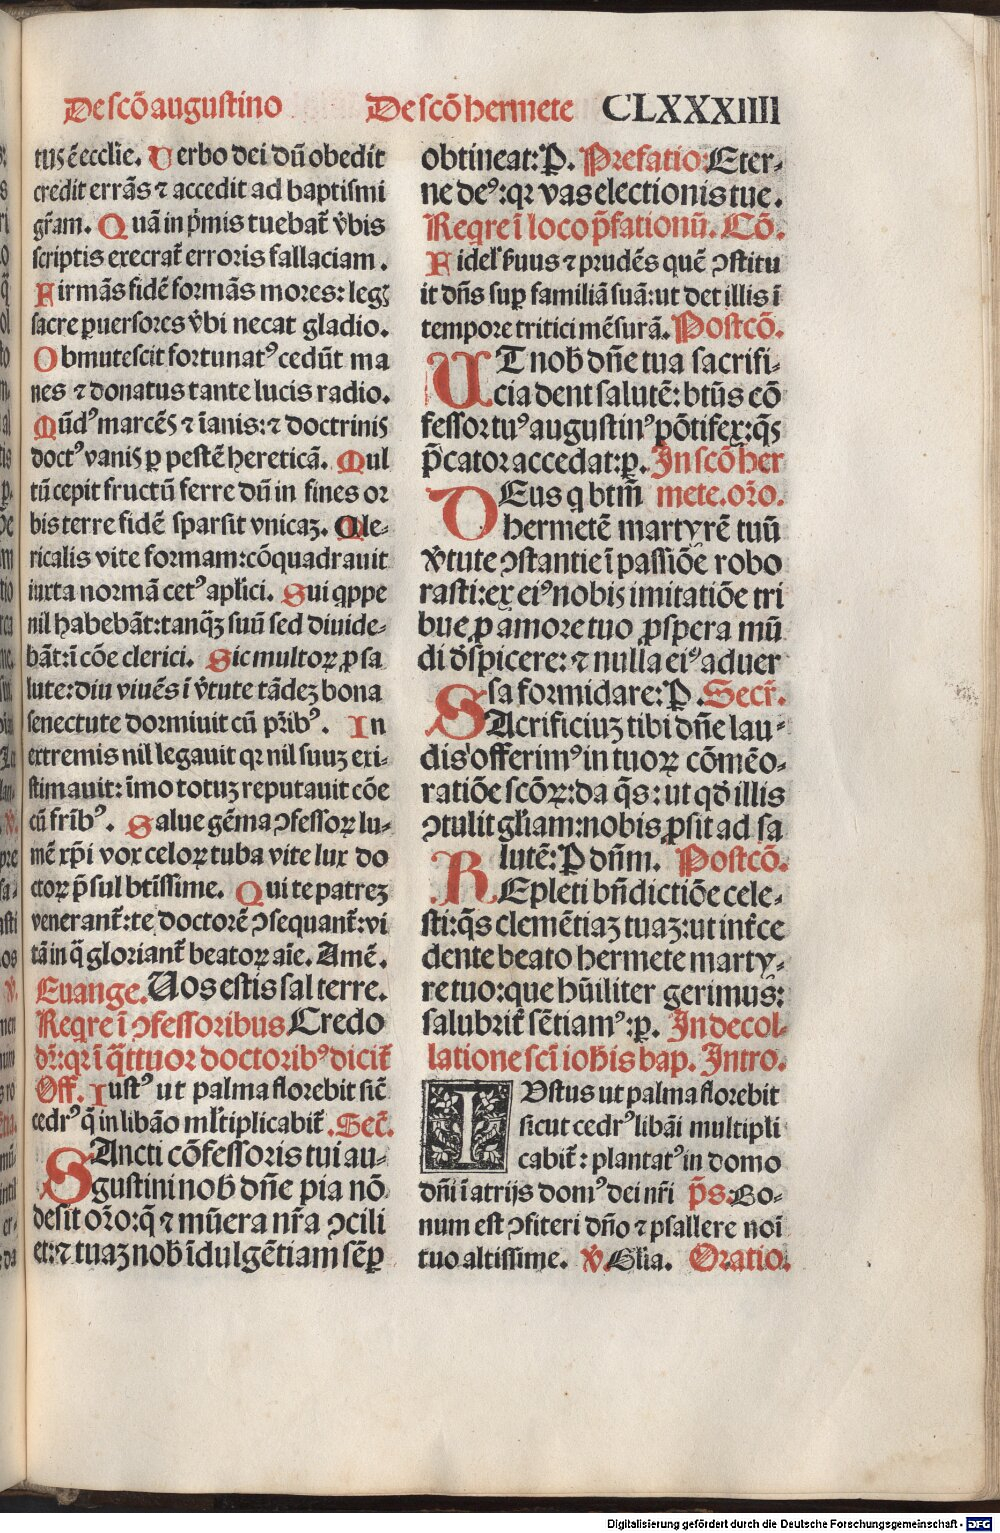 De scõ augustino De scõ hermete CLXXXIIII
tus ē ecclīe. Verbo dei dū obedit
credit errās ⁊ accedit ad baptismi
gr̄am. Quā in p̄mis tuebat̄ v̄bis
scriptis execrat̄ erroris fallaciam.
Firmās fidē formās mores: legꝭ
sacre ꝑuersores v̄bi necat gladio.
Obmutescit fortunatꝰ cedūt ma
nes ⁊ donatus tante lucis radio.
Mūdꝰ marcēs ⁊ īanis: ⁊ doctrinis
doctꝰ vanis ꝑ pestē hereticā. Mul
tū cepit fructū ferre dū in fines or
bis terre fidē sparsit vnicaꝫ. Cle-
ricalis vite formam: cōquadrauit
iuxta normā cetꝰ apl̄ici. Sui qppe
nil habebāt: tanqꝫ suū sed diuide-
bāt: ī cōe clerici. Sic multoꝝ ꝓ sa
lute: diu viuēs ī v̄tute tādeꝫ bona
senectute dormiuit cū pr̄ibꝰ. In
extremis nil legauit qr nil suuꝫ exi-
stimauit: īmo totuꝫ reputauit cōe
cū fr̄ibꝰ. Salue gēma ꝯfessoꝝ lu-
mē xp̄i vox celoꝝ tuba vite lux do
ctoꝝ p̄sul btīssime. Qui te patreꝫ
venerant̄: te doctorē ꝯsequant̄: vi
tā in q̄ gloriant̄ beatoꝝ aīe. Amē.
Euange. Uos estis sal terre.
Reqre ī ꝯfessoribus Credo
dr̄: qr ī q̄ttuor doctoribꝰ dicit̄
Off. Iustꝰ ut palma florebit sic̄
cedrꝰ q̄ in libāo ml̄tiplicabit̄. Sec̄.
SAncti cōfessoris tui au-
gustini nob̄ dn̄e pia nō
desit or̄o: q̄ ⁊ mūera nr̄a ꝯcili
et: ⁊ tuaꝫ nob̄ īdulgētiam sēꝑ
obtineat: P̱. Prefatio: Eter-
ne deꝰ: qr vas electionis tue.
Reqre ī loco p̄fationū. Cō.
Fidel' s̄uus ⁊ prudēs quē ꝯstitu
it dn̄s suꝑ familiā suā: ut det illis ī
tempore tritici mēsurā. Postcō.
UT nob̄ dn̄e tua sacrifi-
cia dent salutē: btūs cō
fessor tuꝰ augustinꝰ pōtifex: qs̄
p̄cator accedat: ꝑ. In scō her
DEus q btm̄ mete. or̄o.
hermetē martyrē tuū
v̄tute ꝯstantie ī passiōe robo
rasti: ex eiꝰ nobis imitatiōe tri
bue ꝓ amore tuo ꝓspera mū
di d̄spicere: ⁊ nulla eiꝰ aduer
sa formidare: P̱. Secr̄.
SAcrificiuꝫ tibi dn̄e lau-
dis offerimꝰ in tuoꝝ cōmēo-
ratiōe scōꝝ: da qs̄: ut qd̄ illis
ꝯtulit gl̄iam: nobis ꝓsit ad sa
lutē: P̱ dn̄m. Postcō.
REpleti bn̄dictiōe cele-
sti: qs̄ clemētiaꝫ tuaꝫ: ut int̄ce
dente beato hermete marty-
re tuo: que hūiliter gerimus:
salubrit̄ sētiamꝰ: ꝑ. In decol-
latione scī ioh̄is bap. Intro.
IUstus ut palma florebit
sicut cedrꝰ libāi multipli
cabit̄: plantatꝰ in domo
dn̄i ī atrijs domꝰ dei nr̄i p̄s: Bo-
num est ꝯfiteri dn̄o ⁊ psallere noī
tuo altissime. V̄. Gl̄ia. Oratio.
Digitalisierung gefördert durch die Deutsche Forschungsgemeinschaft - DFG